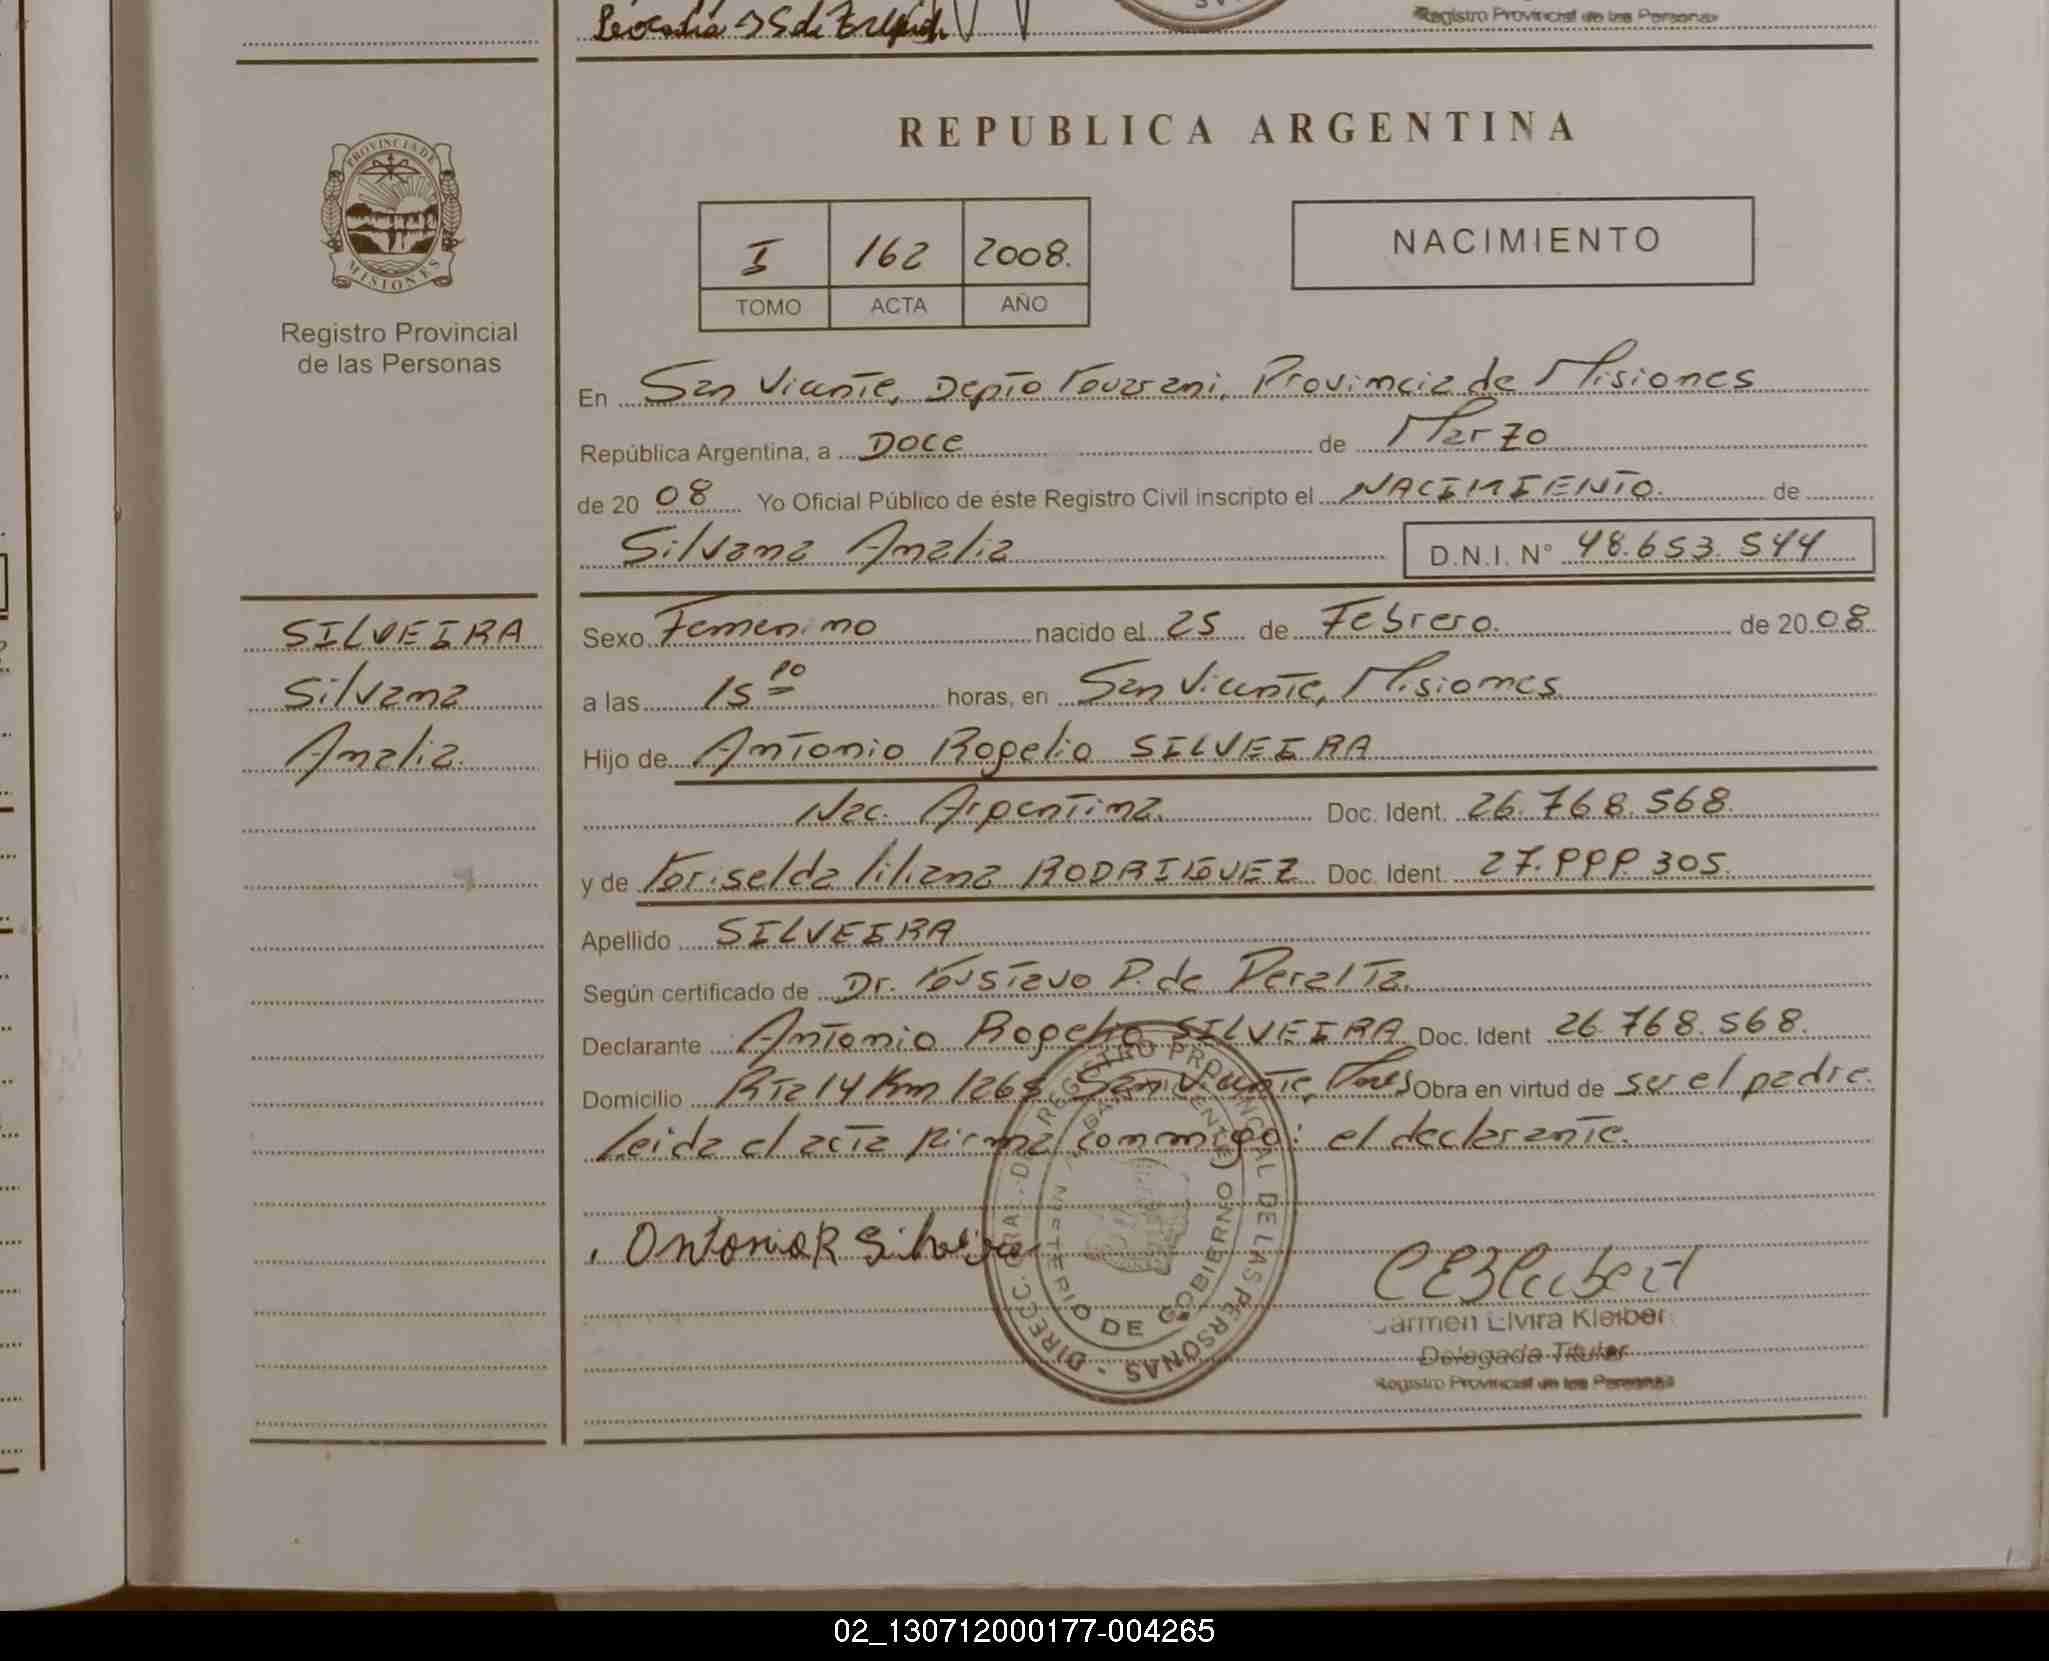 Registro Provincial de las Personas
REPUBLICA ARGENTINA
PROVINCIA DE
MISIONES
Registro Provincial
de las Personas
I 162 2008.
TOMO ACTA AÑO
NACIMIENTO
En San Vicente, Depto Guarani, Provincia de Misiones
República Argentina, a Doce de Marzo
de 2008 Yo Oficial Público de éste Registro Civil inscripto el NACIMIENTO. de
Silvana Analia D.N.I. N° 48.653.544
SILVEIRA
Silvana
Analia.
Sexo Femenino nacido el 25 de Febrero. de 2008
a las 15 10 horas, en San Vicente, Misiones
Hijo de Antonio Rogelio SILVEIRA
Nac. Argentina. Doc. Ident. 26.768.568.
y de Griselda Liliana RODRIGUEZ Doc. Ident. 27.999.305.
Apellido SILVEIRA
Según certificado de Dr. Gustavo P. de Peralta.
Declarante Antonio Rogelio SILVEIRA Doc. Ident 26.768.568.
Domicilio Rta 14 Km 1268 San Vicente, Mnes Obra en virtud de ser el padre.
Leida el acta firma conmigo: el declarante.
Antonio R Silveira
DIRECC. GRAL. DEL REGISTRO PROVINCIAL DE LAS PERSONAS
MINISTERIO DE GOBIERNO
Carmen Elvira Kleiber
Delegada Titular
Registro Provincial de las Personas
02_130712000177-004265